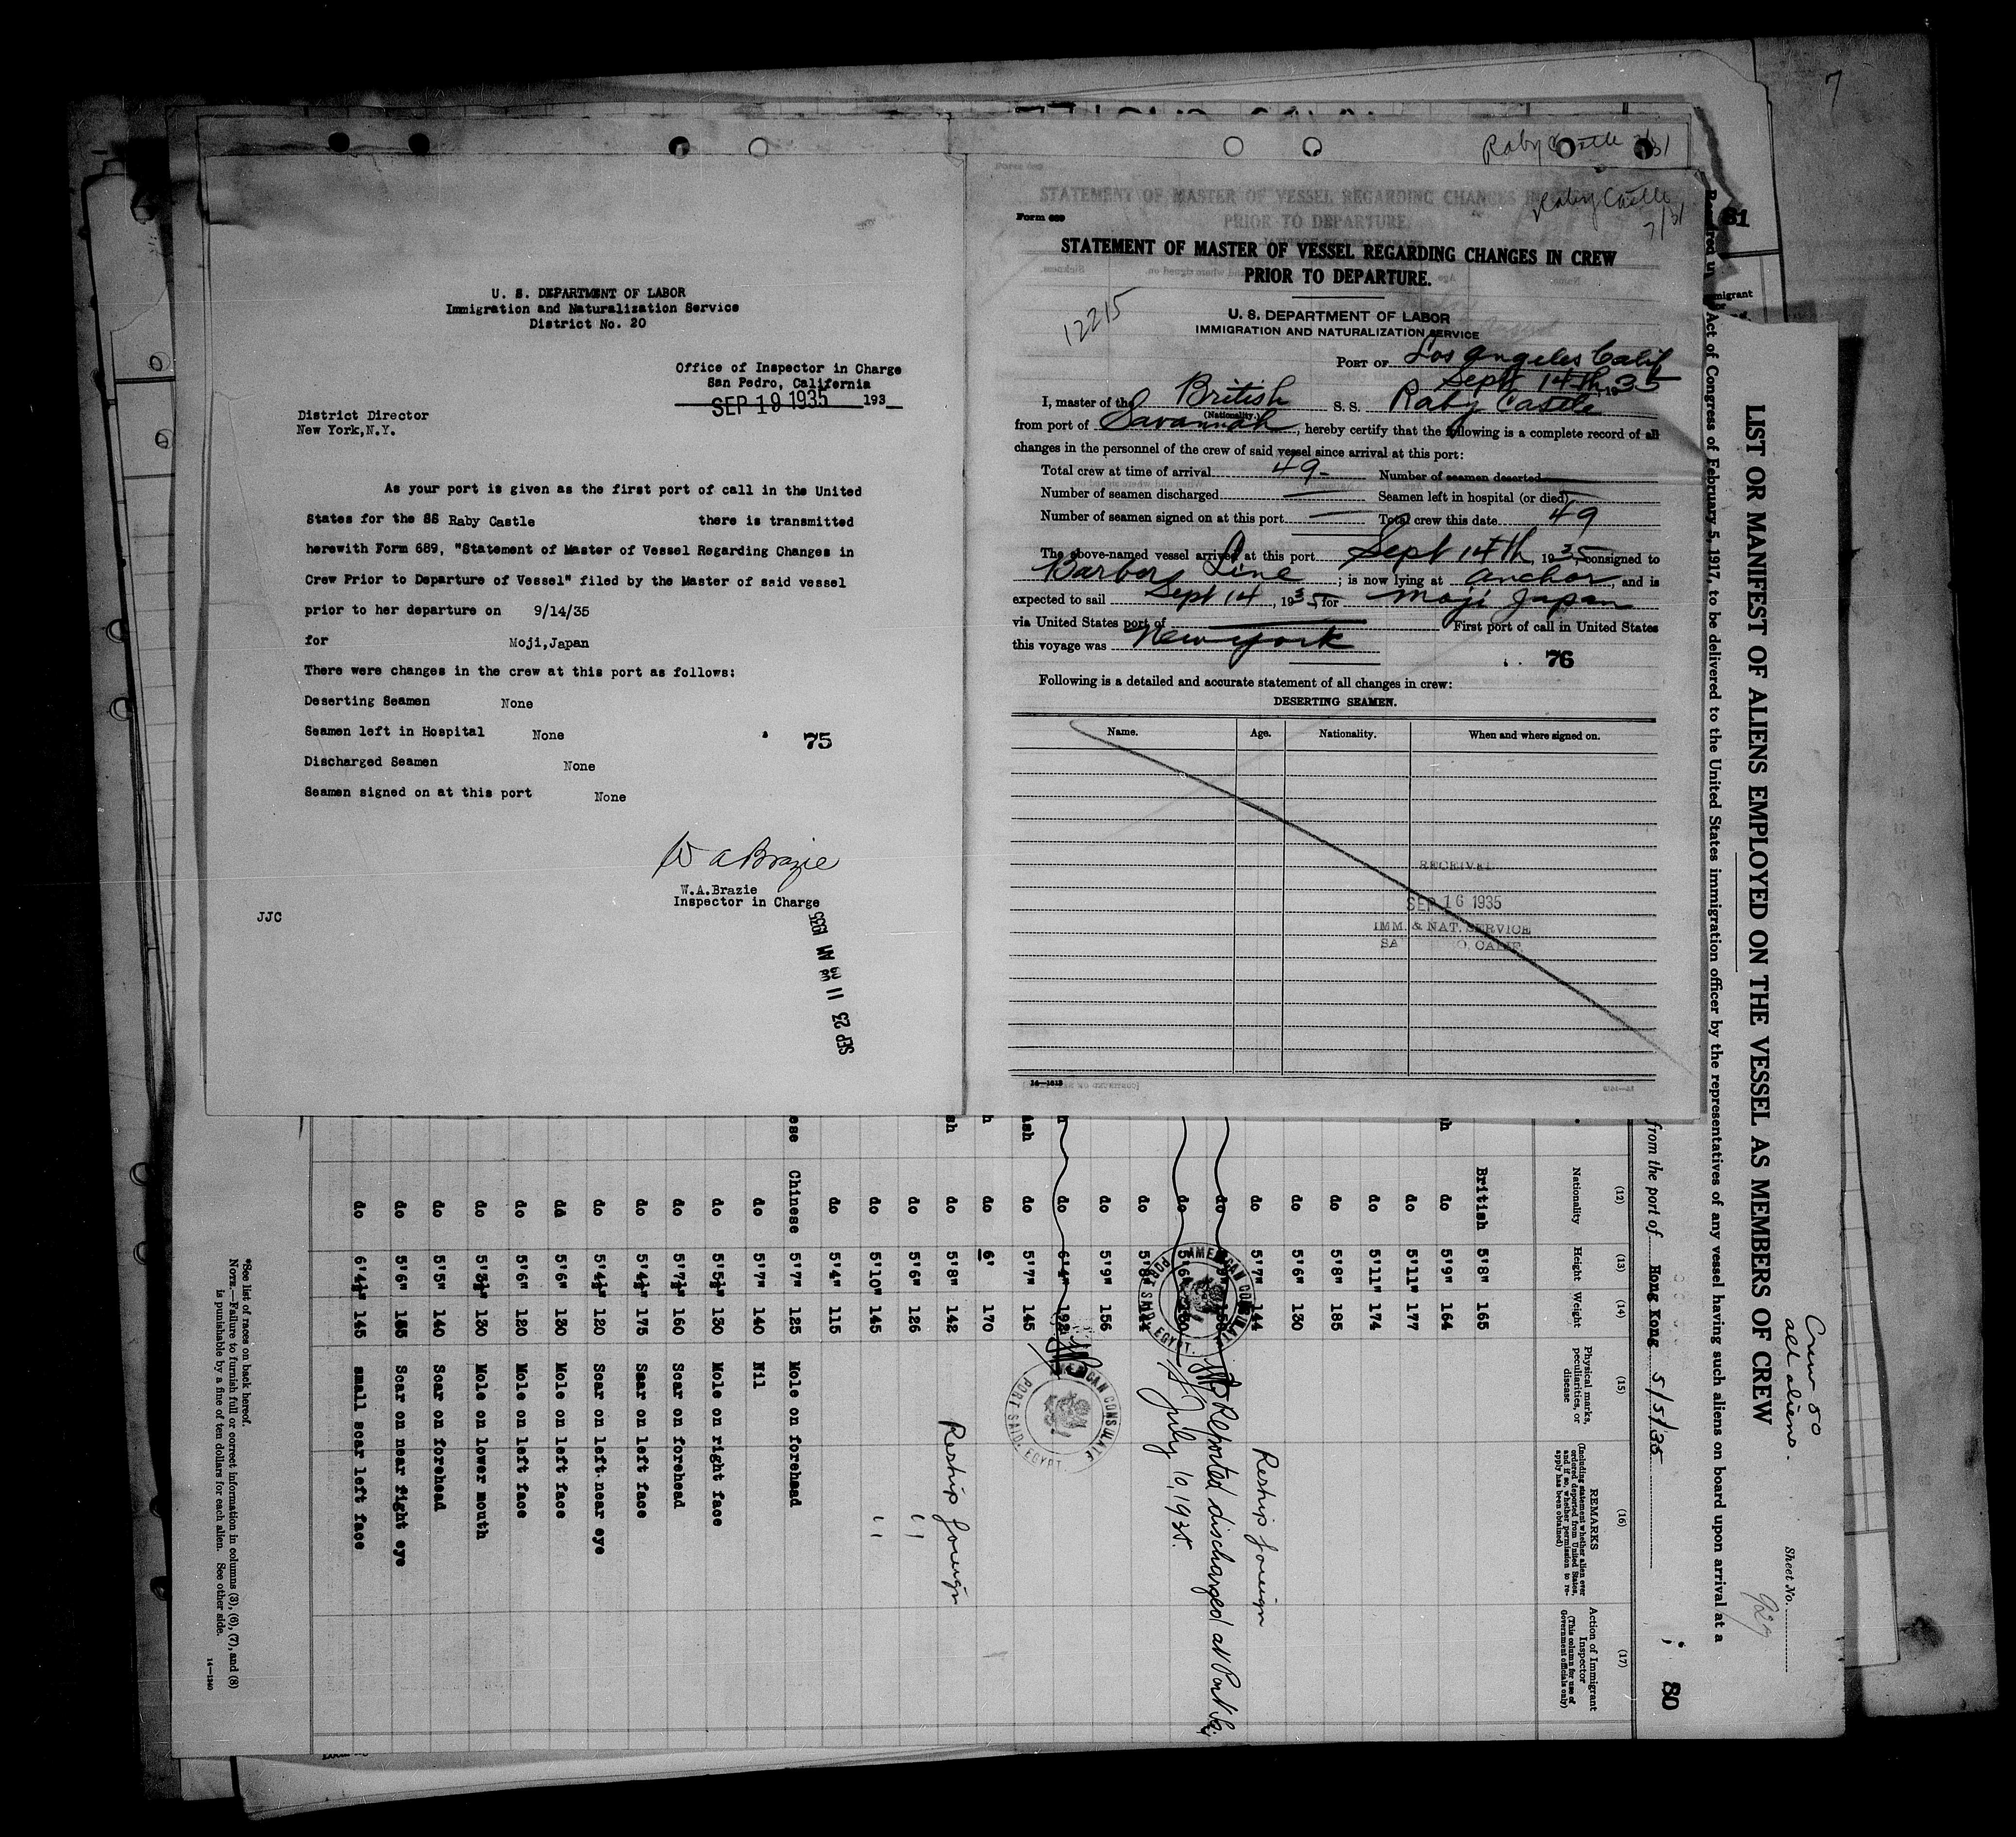 7
Raby Castle 7/31
U. S. DEPARTMENT OF LABOR
Immigration and Naturalization Service
District No. 20
Office of Inspector in Charge
San Pedro, California
SEP 19 1935 193
District Director
New York,N.Y.
As your port is given as the first port of call in the United
States for the SS Raby Castle there is transmitted
herewith Form 689, "Statement of Master of Vessel Regarding Changes in
Crew Prior to Departure of Vessel" filed by the Master of said vessel
prior to her departure on 9/14/35
for Moji,Japan
There were changes in the crew at this port as follows:
Deserting Seamen None
Seamen left in Hospital None
75
Discharged Seamen None
Seamen signed on at this port None
W A Brazie
W.A.Brazie
Inspector in Charge
JJC
SEP 23 11 38 AM 1935
Raby Castle
7/31
Form 689
STATEMENT OF MASTER OF VESSEL REGARDING CHANGES IN CREW
PRIOR TO DEPARTURE.
12215
U. S. DEPARTMENT OF LABOR
IMMIGRATION AND NATURALIZATION SERVICE
PORT OF Los Angeles Calif
Sept 14th, 1935
I, master of the British S. S. Raby Castle
(Nationality.)
from port of Savannah, hereby certify that the following is a complete record of all
changes in the personnel of the crew of said vessel since arrival at this port:
Total crew at time of arrival 49 Number of seamen deserted
Number of seamen discharged Seamen left in hospital (or died)
Number of seamen signed on at this port Total crew this date 49
The above-named vessel arrived at this port Sept 14th, 1935, consigned to
Barber Line; is now lying at anchor, and is
expected to sail Sept 14, 1935 for Moji Japan
via United States port of First port of call in United States
this voyage was New York
76
Following is a detailed and accurate statement of all changes in crew:
DESERTING SEAMEN.
Name. Age. Nationality. When and where signed on.
RECEIVED
SEP 16 1935
IMM. & NAT. SERVICE
CALIF.
14—1613
81
LIST OR MANIFEST OF ALIENS EMPLOYED ON THE VESSEL AS MEMBERS OF CREW
Act of Congress of February 5, 1917, to be delivered to the United States immigration officer by the representatives of any vessel having such aliens on board upon arrival at a
Crew 50
all aliens.
Sheet No.
from the port of Hong Kong 5/5/35
80
(12) (13) (14) (15) (16) (17)
Nationality
Height
Weight
Physical marks, peculiarities, or disease
REMARKS
(Including statement whether alien ever ordered deported from United States, and if so, whether permission to re-apply has been obtained)
Action of Immigrant Inspector
(This column for use of Government officials only)
British 5'8" 165
do 5'9" 164
do 5'11" 177
do 5'11" 174
do 5'8" 185
do 5'6" 130
do 5'7" 144 Reship foreign
do Reported discharged at Port
do July 10, 1935.
do 5'8"
do 5'9" 156
do 6'4" 192
do 5'7" 145
do 6' 170
do 5'8" 142 Reship foreign
do 5'6" 126 " "
do 5'10" 145 " "
do 5'4" 115
Chinese 5'7" 125 Mole on forehead
do 5'7" 140 Nil
do 5'5½" 130 Mole on right face
do 5'7½" 160 Scar on forehead
do 5'4½" 175 Scar on left face
do 5'4½" 120 Scar on left near eye
do 5'6" 130 Mole on left face
do 5'6" 120 Mole on left face
do 5'3½" 130 Mole on lower mouth
do 5'5" 140 Scar on forehead
do 5'6" Scar on near right eye
do 6'4½" 145 small scar left face
AMERICAN CONSULATE
PORT SAID, EGYPT.
AMERICAN CONSULATE
PORT SAID, EGYPT.
*See list of races on back hereof.
NOTE.—Failure to furnish full or correct information in columns (3), (6), (7), and (8)
is punishable by a fine of ten dollars for each alien. See other side.
14—1240